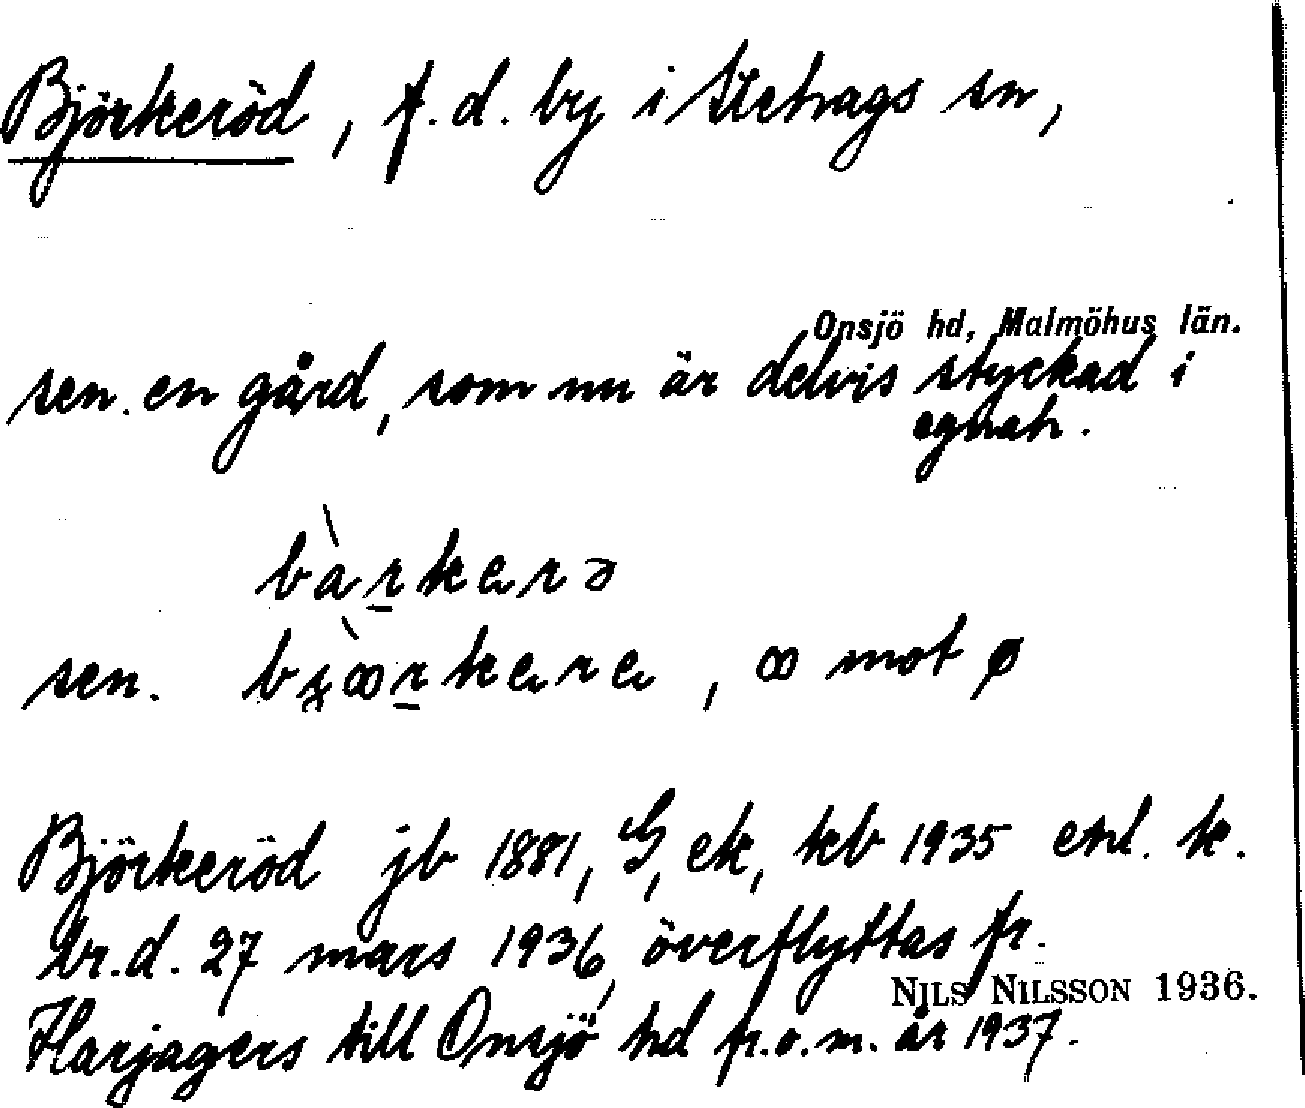 Björkeröd, f.d. by i Stehags sn,
Onsjö hd, Malmöhus län.
sen. en gård, som nu är delvis styckad i
egnah.
bàrkerə
sen. bjꝏ̀rkere, ꝏ mot ø
Björkeröd jb 1881, G, ek, kb 1935 enl. k.
br.d. 27 mars 1936, överflyttas fr.
NILS NILSSON 1936.
Harjagers till Onsjö hd fr.o.m. år 1937.